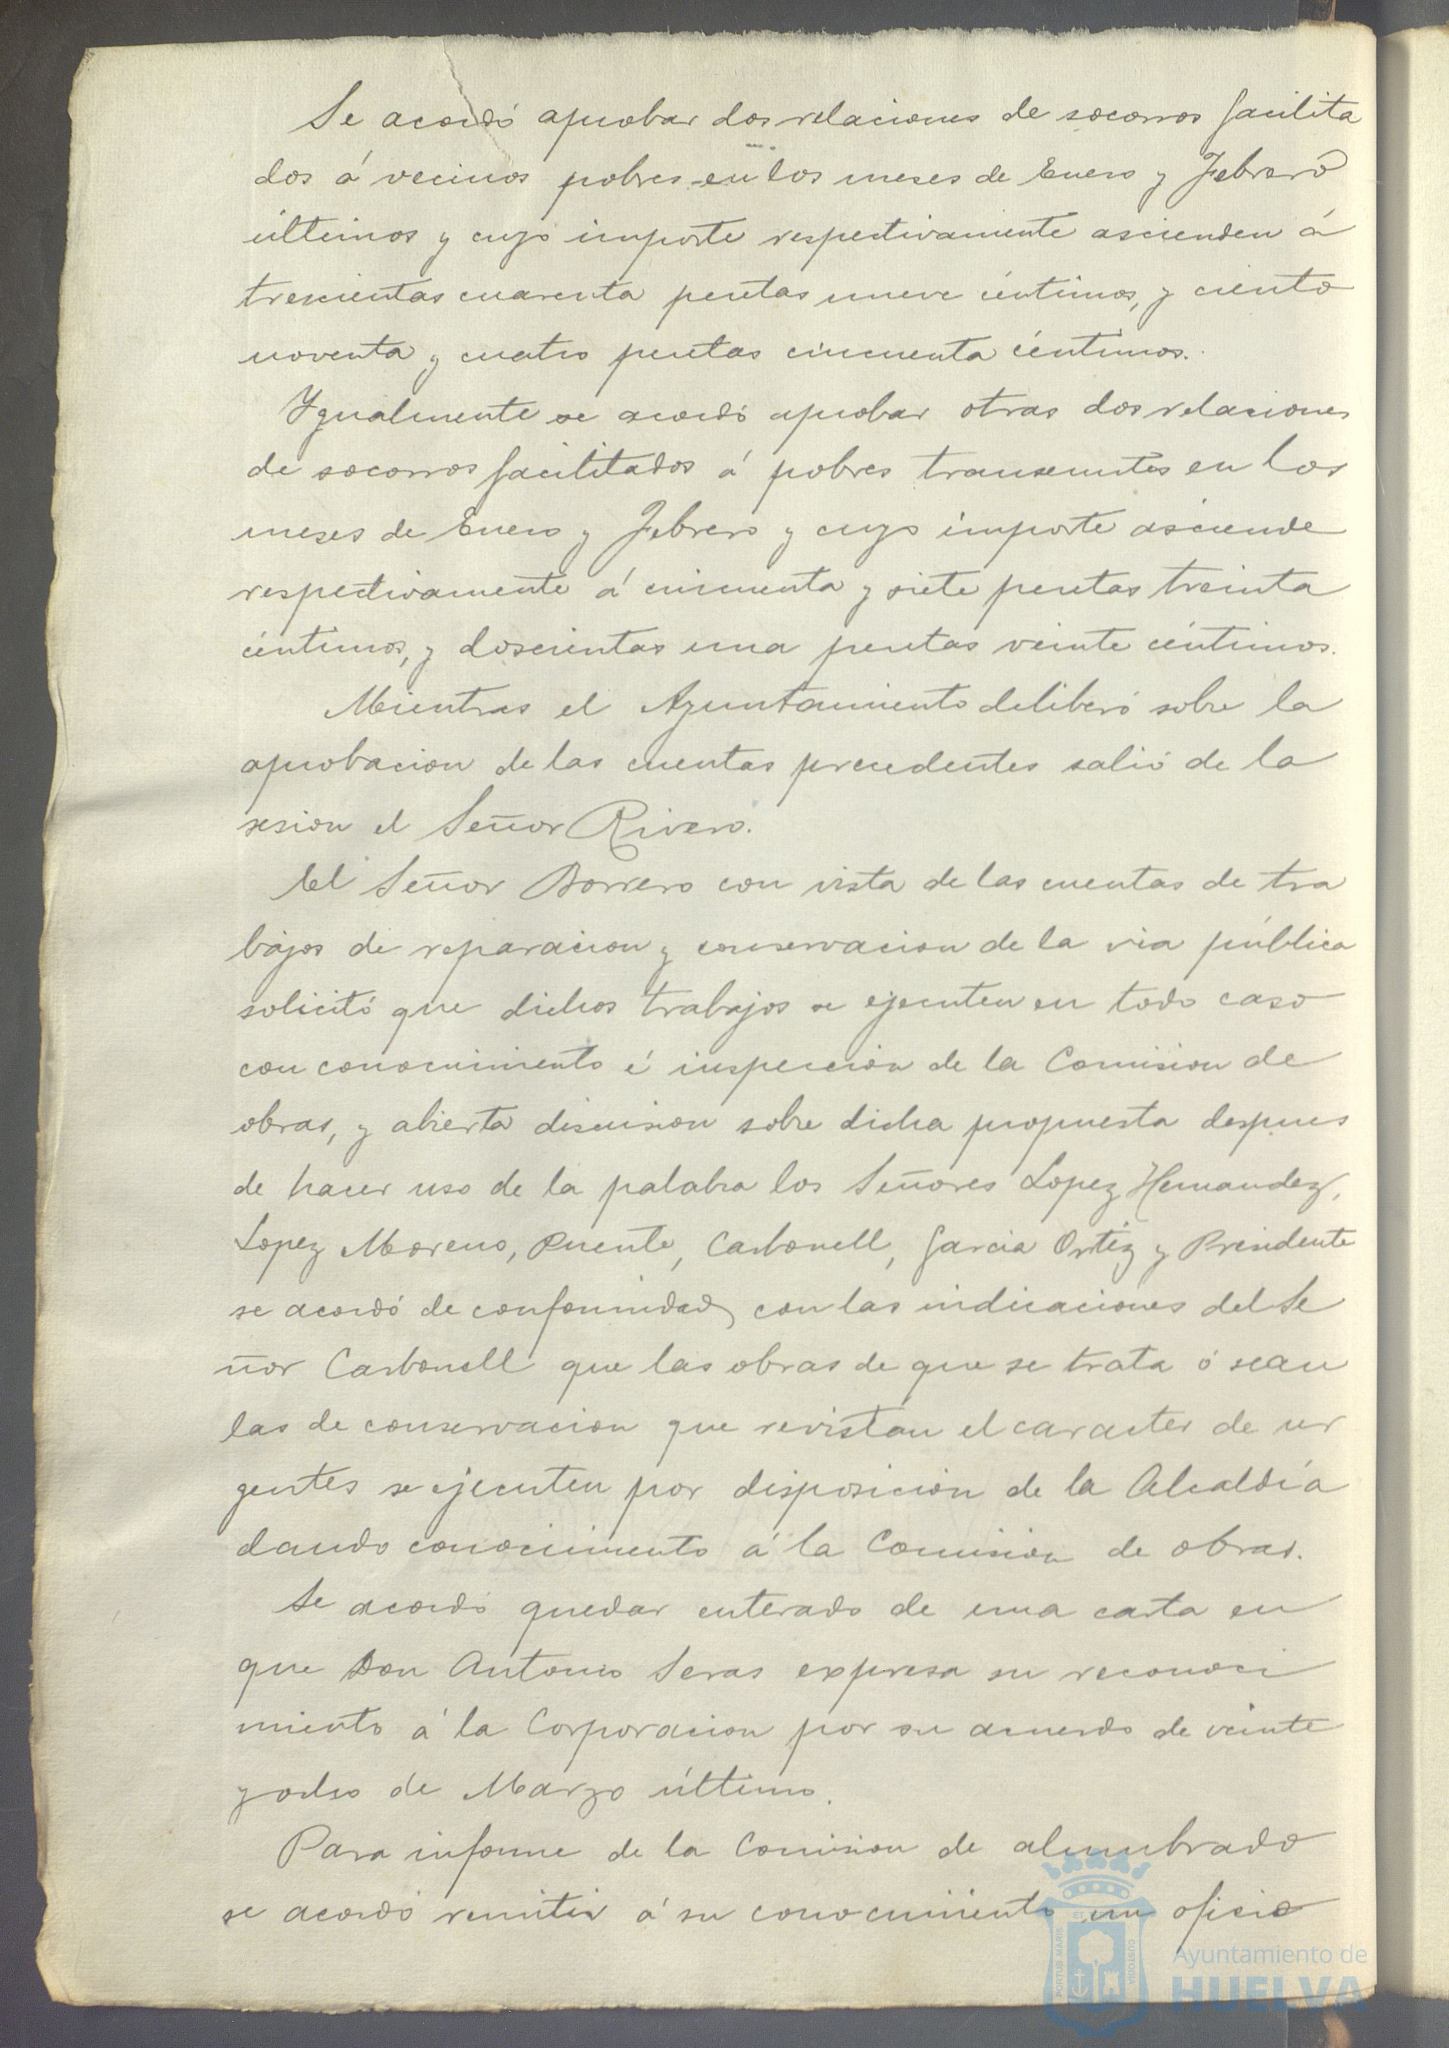 Se acordó aprobar dos relaciones de socorros facilita
dos á vecinos pobres en los meses de Enero y Febrero
últimos y cuyo importe respectivamente ascienden á
trescientas cuarenta pesetas nueve céntimos, y ciento
noventa y cuatro pesetas cincuenta céntimos.
Ygualmente se acordó aprobar otras dos relaciones
de socorros facilitados á pobres transeuntes en los
meses de Enero y Febrero y cuyo importe asciende
respectivamente á cincuenta y siete pesetas treinta
céntimos, y doscientas una pesetas veinte céntimos.
Mientras el Ayuntamiento deliberó sobre la
aprobacion de las cuentas precedentes salió de la
sesion el Señor Rivero.
El Señor Borrero con vista de las cuentas de tra
bajos de reparacion y conservacion de la via pública
solicitó que dichos trabajos se ejecuten en todo caso
con conocimiento é inspeccion de la Comision de
obras, y abierta discusion sobre dicha propuesta despues
de hacer uso de la palabra los Señores Lopez Hernandez,
Lopez Moreno, Puente, Carbonell, Garcia Ortiz y Presidente
se acordó de conformidad con las indicaciones del Se
ñor Carbonell que las obras de que se trata ó sean
las de conservacion que revistan el caracter de ur
gentes se ejecuten por disposicion de la Alcaldía
dando conocimiento á la Comision de obras.
Se acordó quedar enterado de una carta en
que Don Antonio Seras expresa su reconoci
miento á la Corporacion por su acuerdo de veinte
y ocho de Marzo último.
Para informe de la Comision de alumbrado
se acordó remitir á su conocimiento un oficio
PORTUS MARIS ET TERRAE CUSTODIA
Ayuntamiento de
HUELVA